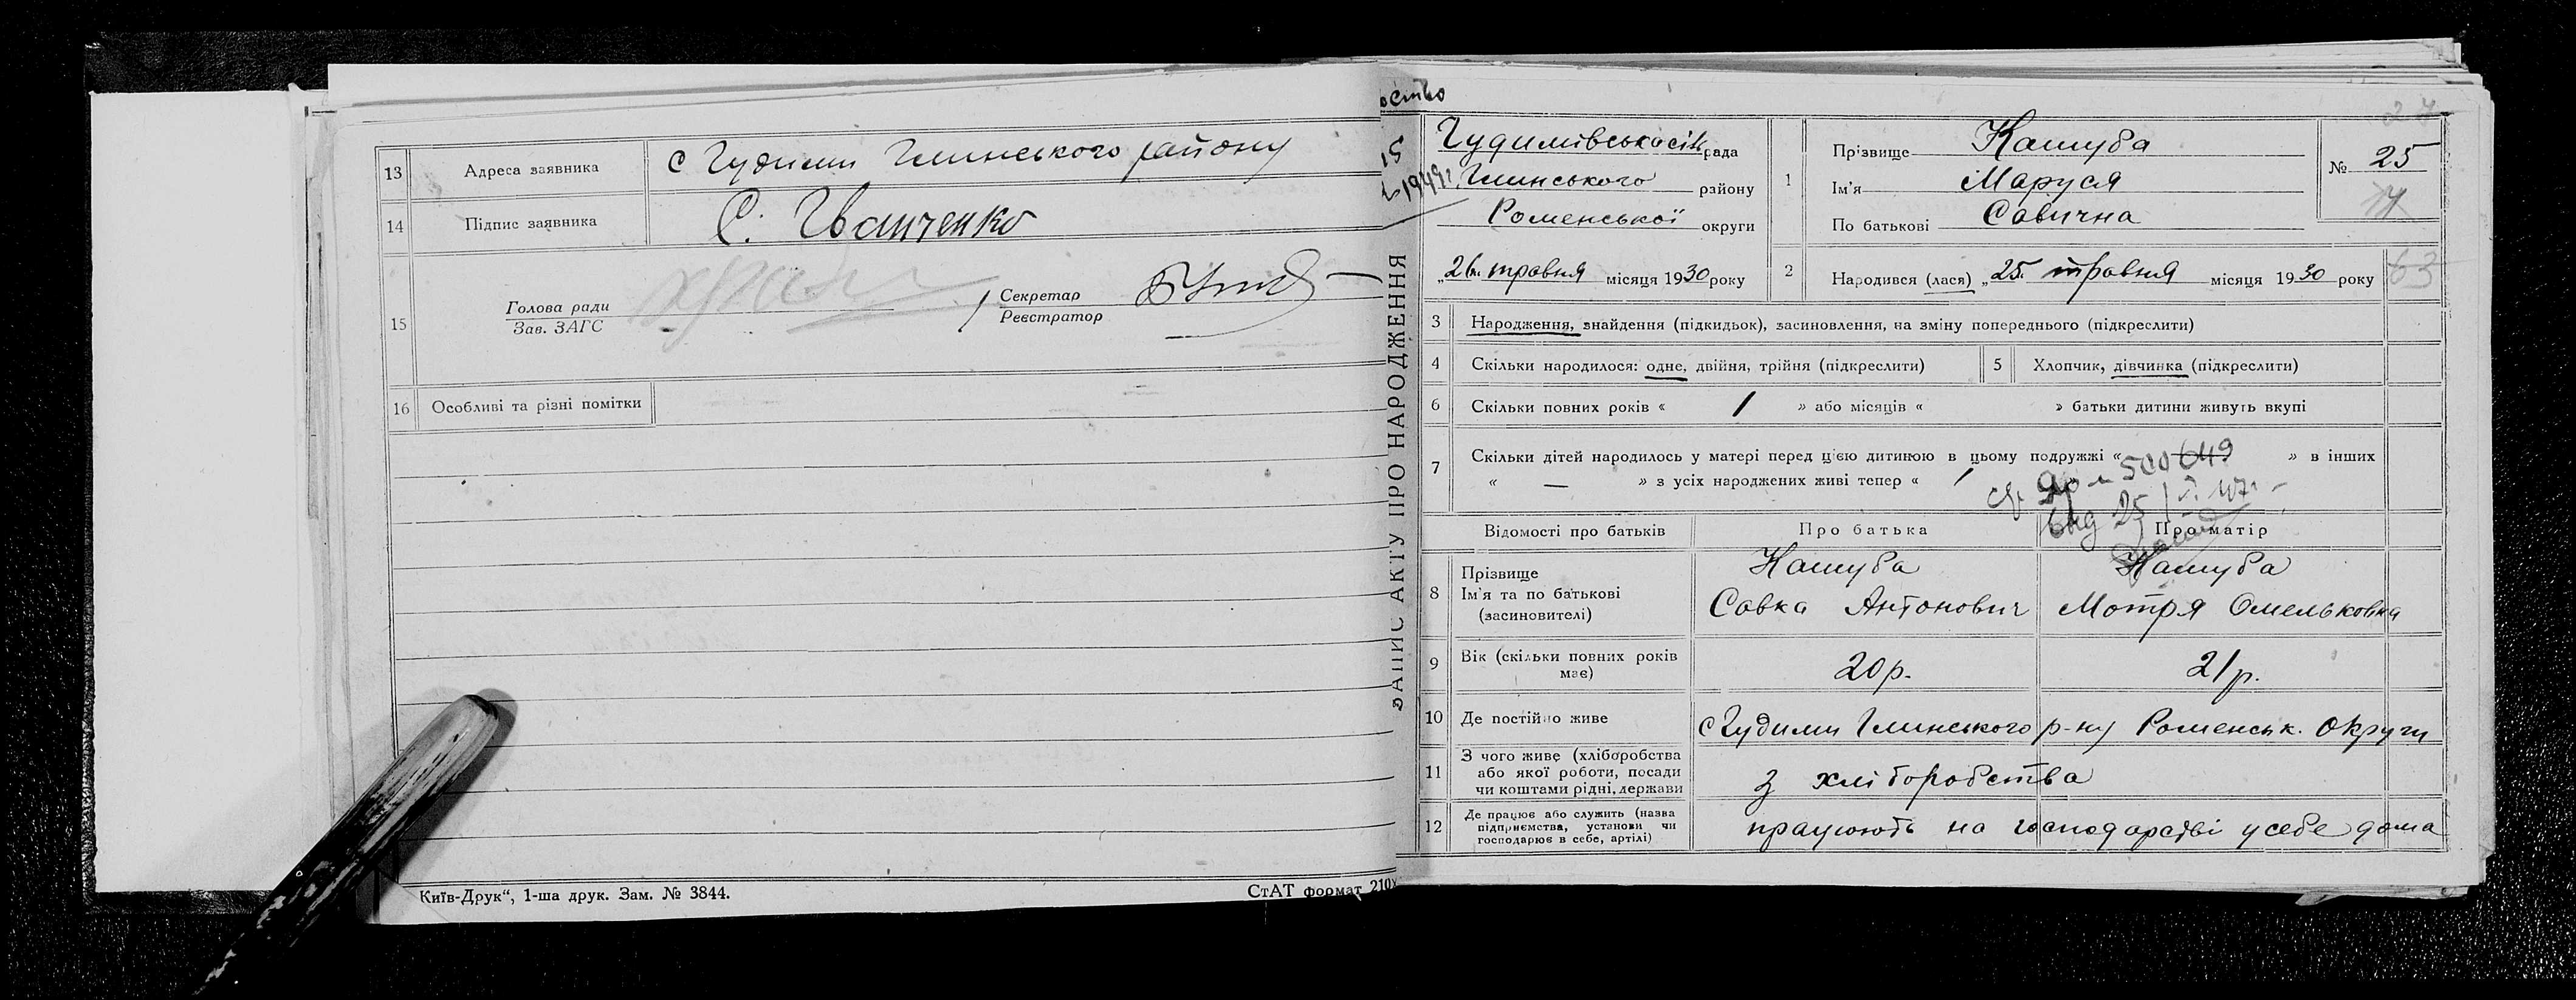 13 Адреса заявника с Гудими Глинського району
14 Підпис заявника С. Іванченко
15 Голова ради
Зав. ЗАГС
Секретар
Реєстратор
16 Особливі та різні помітки
Київ-Друк“, 1-ша друк. Зам. № 3844.
СтАТ формат 210
ЗАПИС АКТУ ПРО НАРОДЖЕННЯ
15
1949г.
Гудимівська сіль рада
Глинського району
Роменської округи
„26. травня місяця 1930 року
1 Прізвище Кашуба
Ім'я Маруся
По батькові Савична
№ 25
27
63
2 Народився (лася) „25. травня місяця 1930 року
3 Народження, знайдення (підкидьок), засиновлення, на зміну попереднього (підкреслити)
4 Скільки народилося: одне, двійня, трійня (підкреслити)
5 Хлопчик, дівчинка (підкреслити)
6 Скільки повних років « 1 » або місяців « » батьки дитини живуть вкупі
7 Скільки дітей народилось у матері перед цією дитиною в цьому подружжі « » в інших
« — » з усіх народжених живі тепер «
Відомості про батьків Про батька Про матір
8 Прізвище
Ім'я та по батькові
(засиновителі)
Кашуба
Савка Антонович
Кашуба
Мотря Омельковна
9 Вік (скільки повних років має) 20 р. 21 р.
10 Де постійно живе с Гудими Глинського р-ну Роменськ. Округи
11 З чого живе (хліборобства
або якої роботи, посади
чи коштами рідні, держави
з хліборобства
12 Де працює або служить (назва
підприємства, установи чи
господарює в себе, артілі)
працюють на господарстві у себе дома